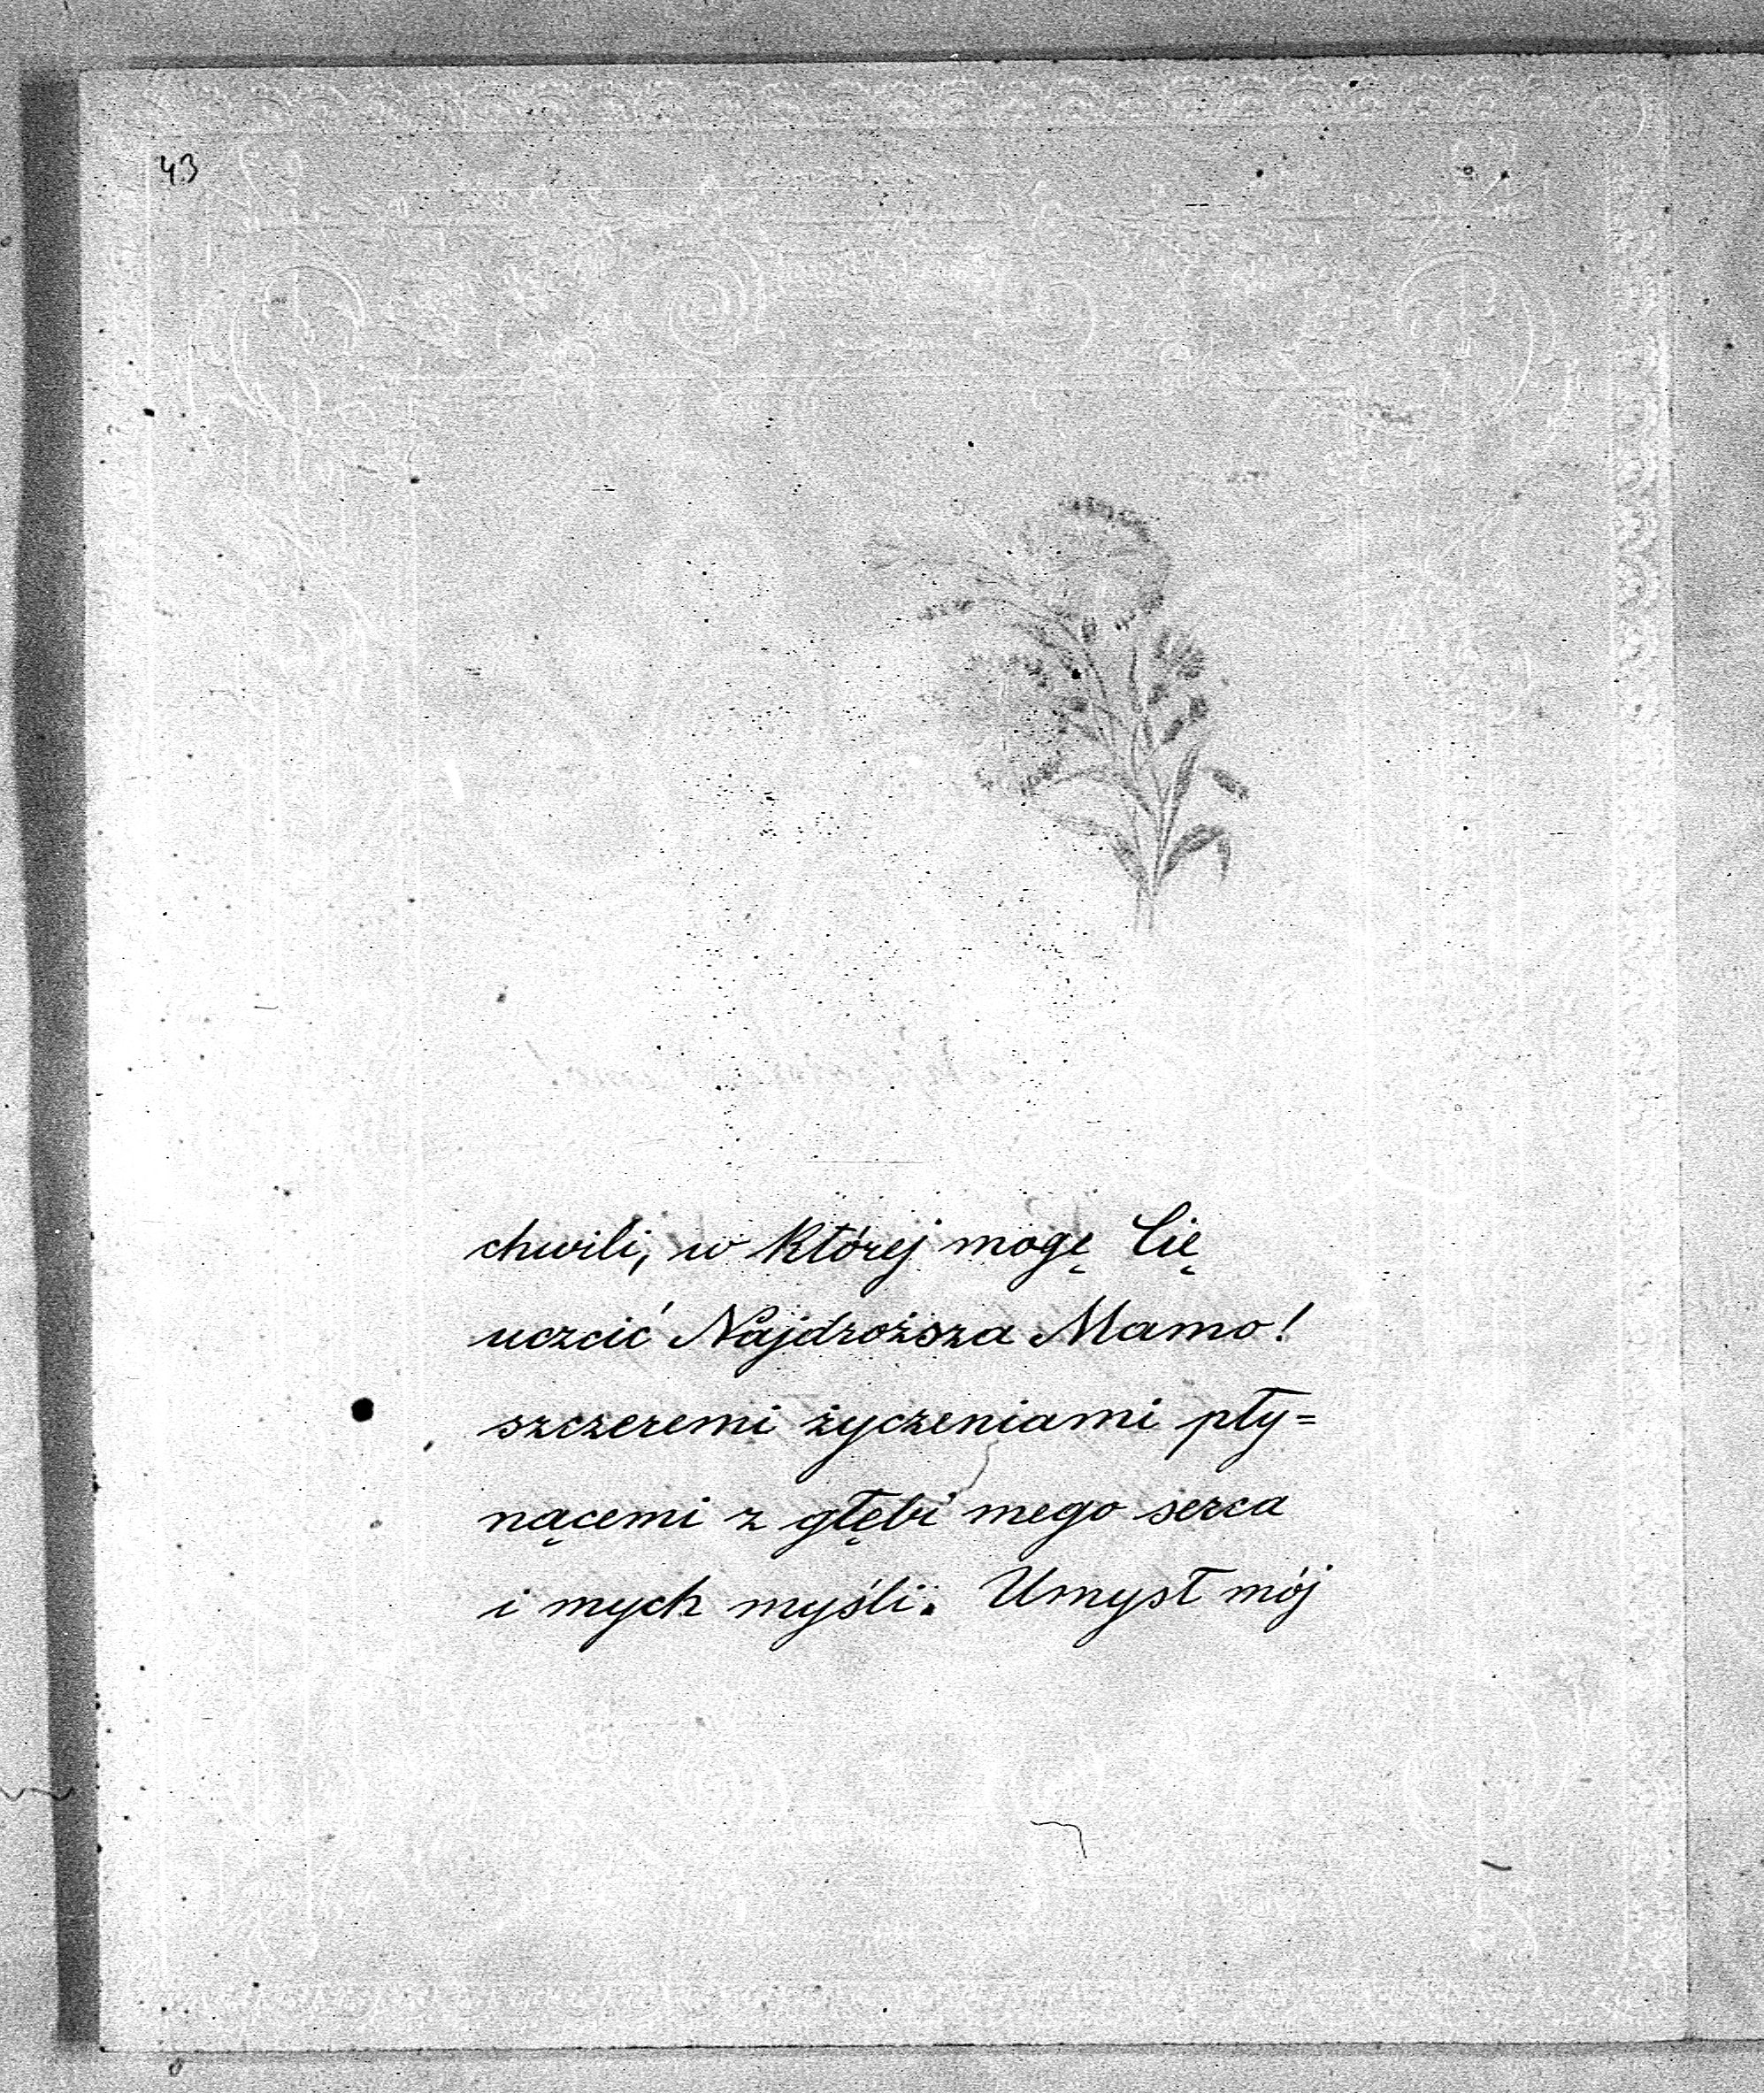 43
chwili, w której mogę Cię
uczcić Najdroższa Mamo!
szczeremi życzeniami pły=
nącemi z głębi mego serca
i mych myśli. Umysł mój